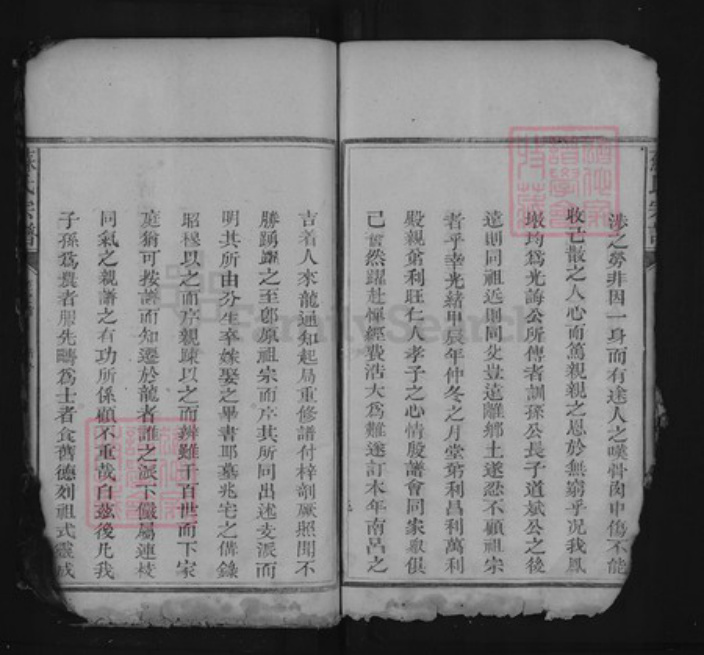 涉之勞非因一身而有途人之嘆骨肉中傷不能
收已散之人心而篤親親之恩於無窮乎况我鳳
墩均爲光誨公所傳者訓孫公長子道斌公之後
遠則同祖近則同父豈遠離鄉土遂忍不顧祖宗
者乎幸光緒甲辰年仲冬之月堂弟利昌利萬利
殷親弟利旺仁人孝子之心情殷譜會同家嚴俱
已奮然躍赴惮經費浩大爲難遂訂本年南呂之
吉着人來龍通知起局重修譜付梓剞厥照聞不
勝踴躍之至郎原祖宗而序其所同出述支派而
明其所由分生卒嫁娶之畢書耶墓兆宅之備錄
昭穆以之而序親疎以之而辨雖千百世而下宗
庭猶可按譜而知遷於龍者誰之派下儼屬連枝
同氣之親譜之有功所係顧不重哉自茲後凡我
子孫爲農者服先疇爲士者食舊德列祖式靈成
氏宗譜
FamilySearch